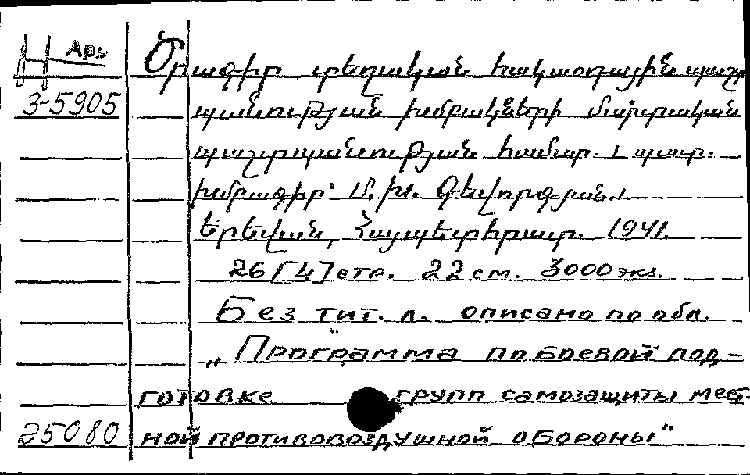 Арм
3-5905
Ծրագիր տեղական հակաօդային պաշտ
պանության խմբակների մարտական
պաշտպանության համար. պատ.
խմբագիր՝ Մ. Խ. Գևորգյան.
Երևան, Հայպետհրատ. 1941.
26 [4] стр. 22 см. 3000 экз.
Без тит. л. описано по обл.
„Программа по боевой под-
готовке групп самозащиты мест-
25080 ной противовоздушной обороны"